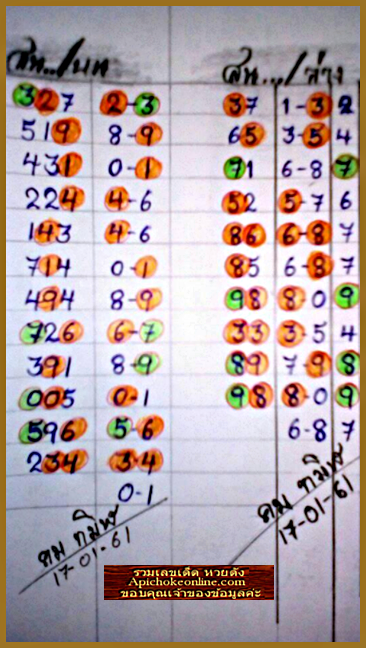 สน.../บน
สน.../ล่าง
327 2-3
519 8-9
431 0-1
224 4-6
143 4-6
714 0-1
494 8-9
726 6-7
391 8-9
005 0-1
596 5-6
234 3-4
0-1
37 1-3 2
65 3-5 4
71 6-8 7
52 5-7 6
86 6-8 7
85 6-8 7
98 8-0 9
33 3-5 4
89 7-9 8
98 8-0 9
6-8 7
คม ทมิฬ
17-01-61
คม ทมิฬ
17-01-61
รวมเลขเด็ด หวยดัง
Apichokeonline.com
ขอบคุณเจ้าของข้อมูลค่ะ